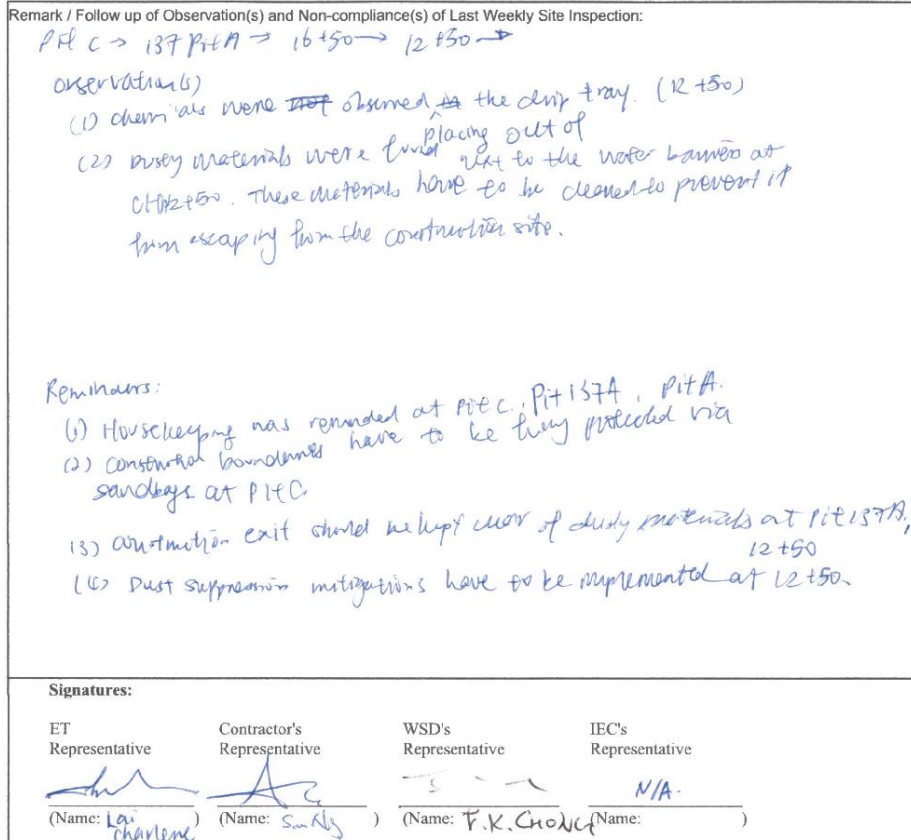 Remark / Follow up of Observation(s) and Non-compliance(s) of Last Weekly Site Inspection:
Pit C → 137 Pit A → 16+50 → 12+50 →
Observation(s)
(1) Chemicals were not observed in the drip tray. (12+50)
placing out of
(2) Dusty materials were found next to the water barriers at
CH12+50. These materials have to be cleaned to prevent it
from escaping from the construction site.
Reminders:
(1) Housekeeping was reminded at Pit C, Pit 137A, Pit A.
(2) Construction boundaries have to be fully protected via
sandbags at Pit C
(3) Construction exit should be kept clear of dusty materials at Pit 137A,
12+50
(4) Dust suppression mitigations have to be implemented at 12+50.
Signatures:
ET Contractor's WSD's IEC's
Representative Representative Representative Representative
N/A.
(Name: Lai ) (Name: S.m Ng ) (Name: F.K. CHONG (Name: )
Charlene